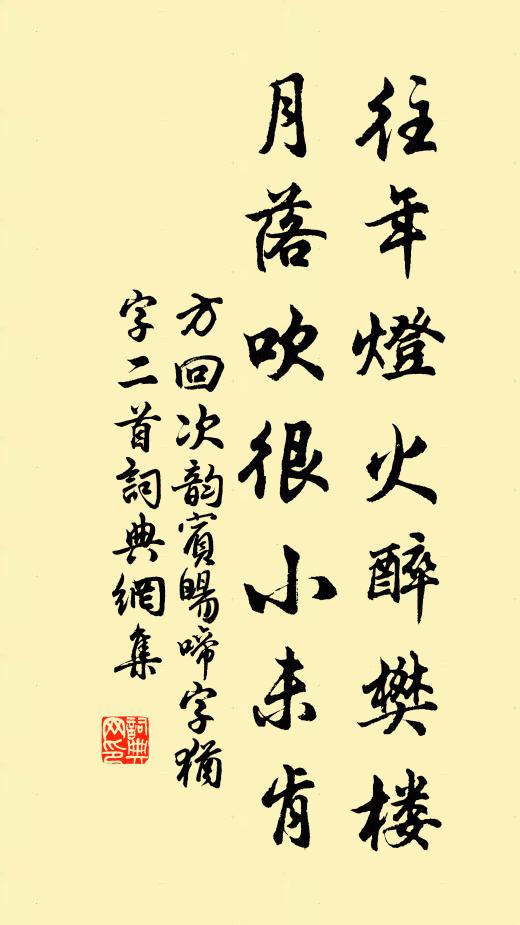 往年燈火醉樊楼
月落吹很小未肯
方回次韵賓暘啼字猶
字二首詞典網集
詞典网印